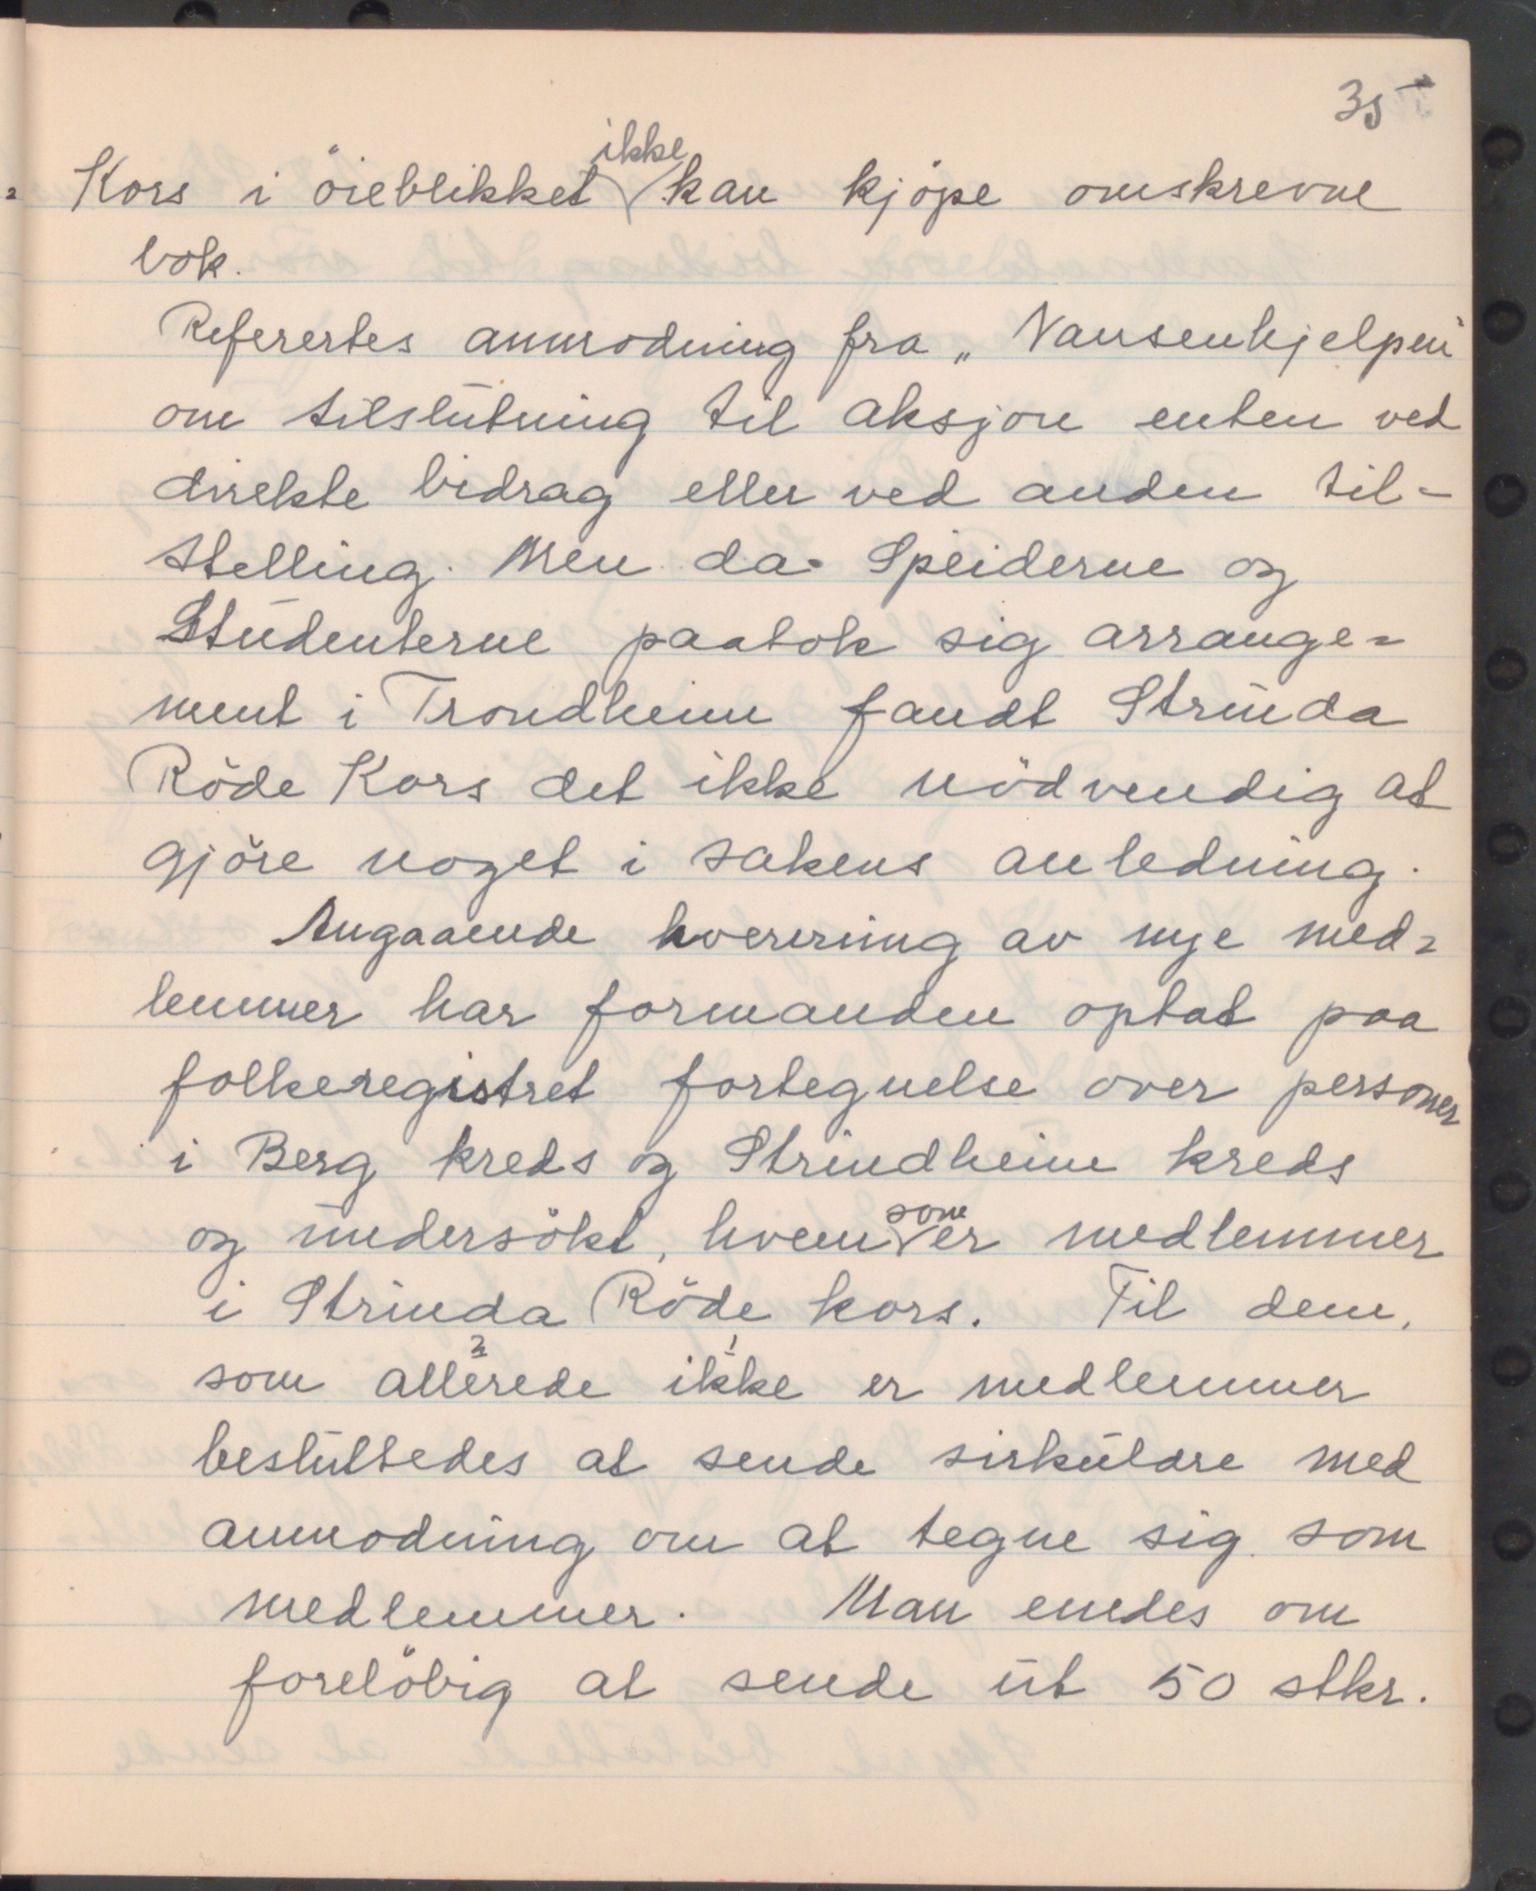 35
Kors i öieblikket ikke kan kjöpe omskrevne
bok.
Referertes anmrodning fra „Nansenhjelpen"
om tilslutning til aksjon enten ved
direkte bidrag eller ved anden til-
stelling. Men da Speiderne og
Studenterne paatok sig arrange=
ment i Trondheim fandt Strinda
Röde Kors det ikke nödvendig at
gjöre noget i sakens anledning.
Angaaende hverering av nye med=
lemmer har formanden optat paa
folkeregistret fortegnelse over personer
i Berg kreds og Strindheim kreds
og undersökt, hvem som er medlemmer
i Strinda Röde kors. Til dem,
som allerede ikke er medlemmer
besluttedes at sende sirkulære med
anmodning om at tegne sig som
medlemmer. Man enedes om
forelöbig at sende ut 50 stkr.